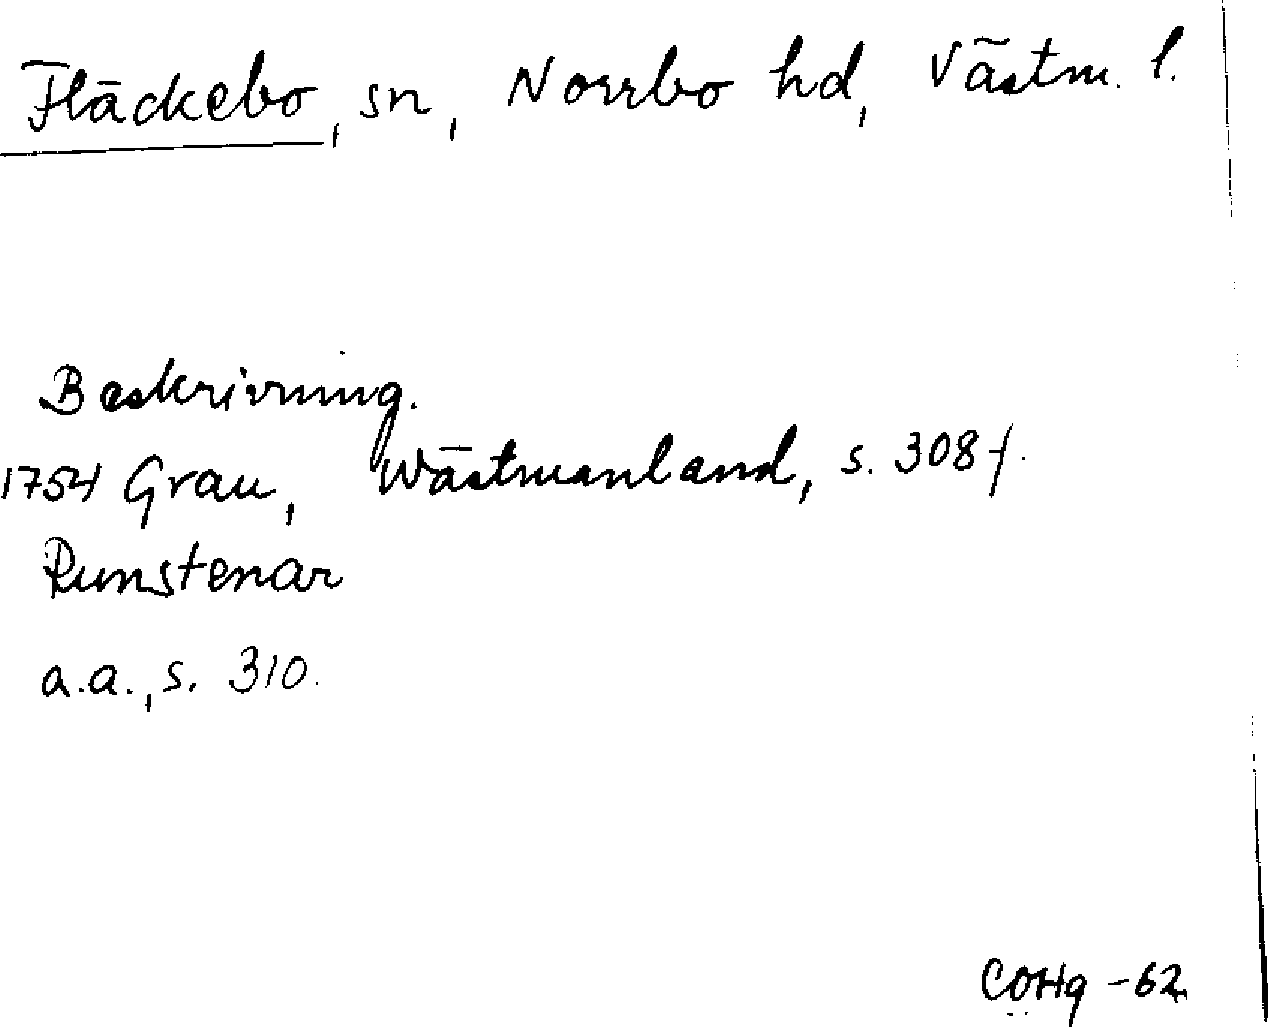 Fläckebo, sn, Norrbo hd, Västm. l.
Beskrivning.
1754 Grau, Wästmanland, s. 308 f.
Runstenar
a.a., s. 310.
COHg -62